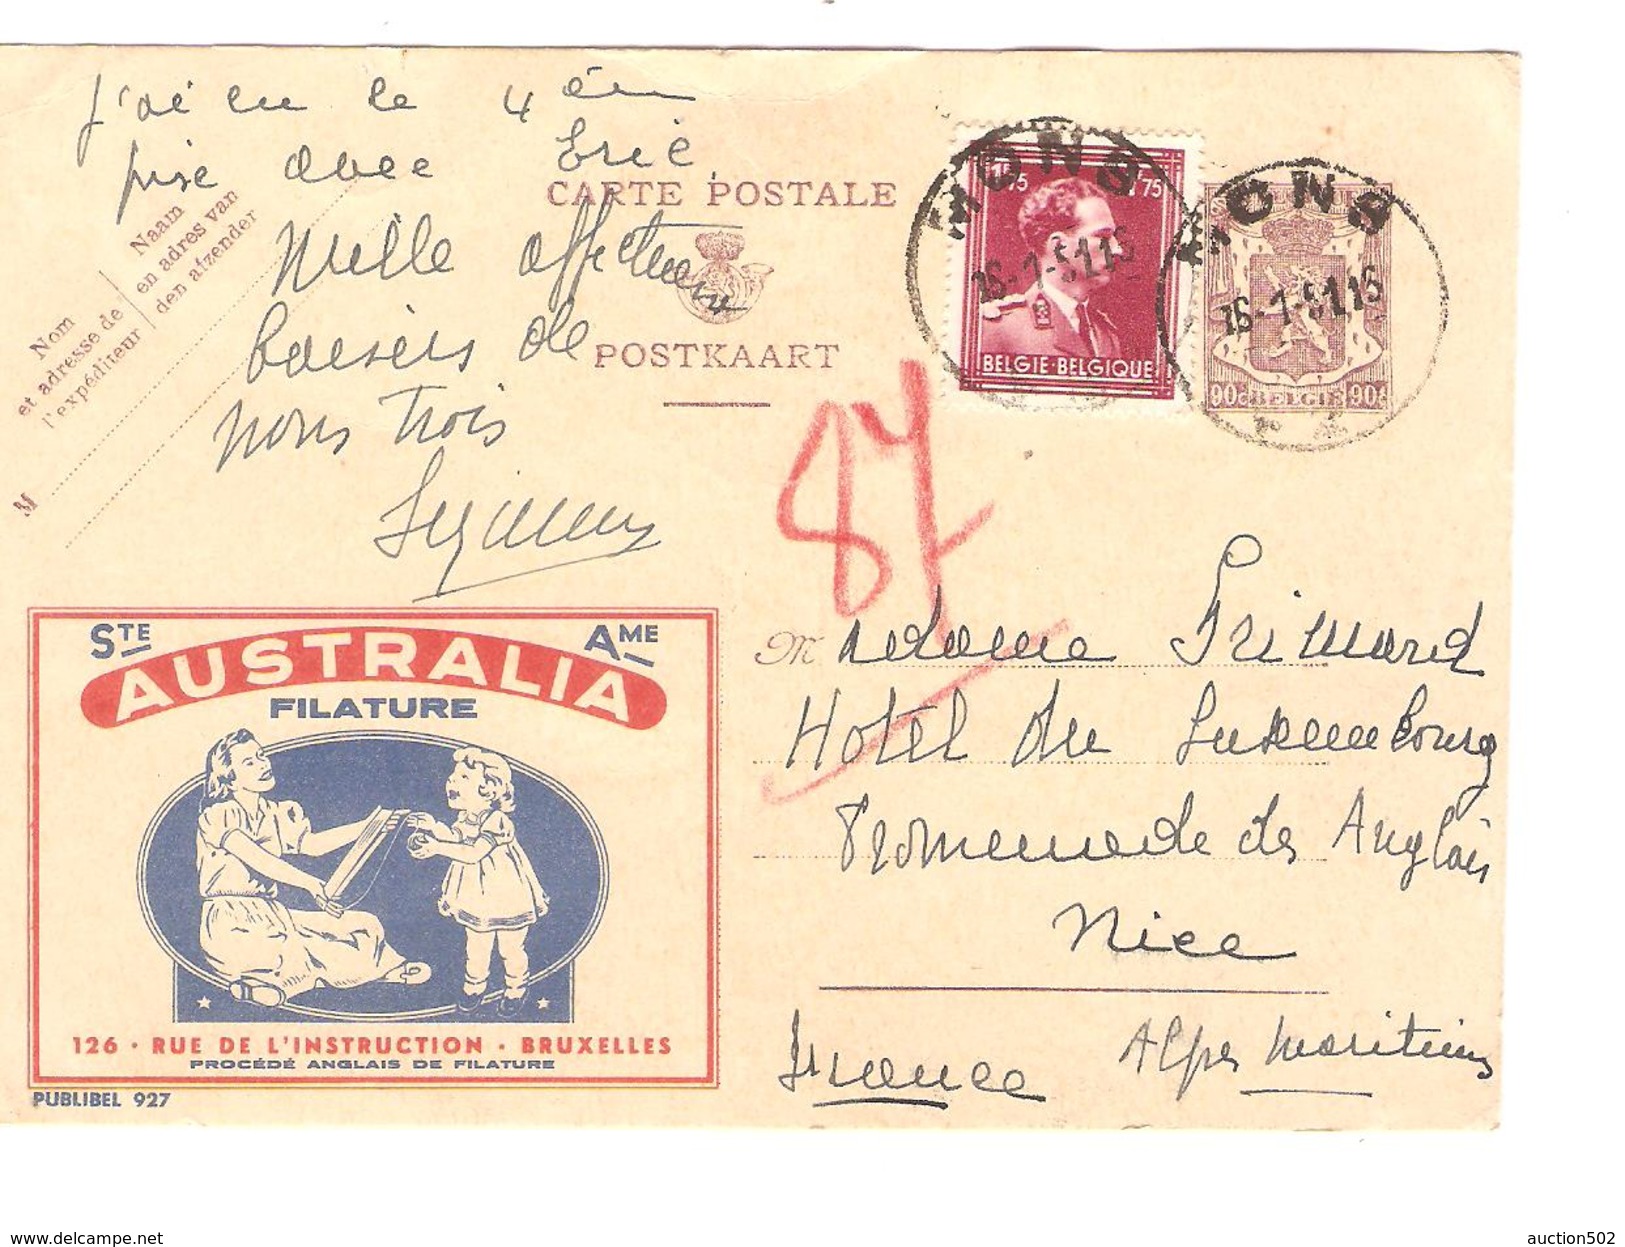 J'ai eu le 4 ém
prise avec Eric
Mille affectueux
baisers de
nous trois
Suzanne
CARTE POSTALE
POSTKAART
Nom
et adresse de
l'expéditeur
Naam
en adres van
den afzender
M
1F75 1F75
BELGIE-BELGIQUE
MONS
16-1-51 15
MONS
16-1-51 15
90c BELGIE 90c
87
STE AME
AUSTRALIA
FILATURE
126 · RUE DE L'INSTRUCTION · BRUXELLES
PROCÉDÉ ANGLAIS DE FILATURE
PUBLIBEL 927
M Madame Primard
Hotel du Luxembourg
Promenade des Anglais
Nice
France Alpes Maritimes
delcampe.net
auction502